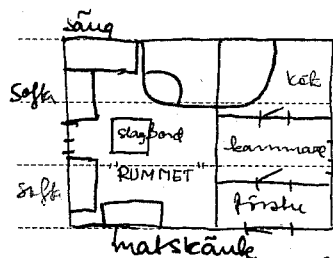 säng
Soffa
kök
slagbord
kammare
RUMMET
Soffa
förstu
matskänk